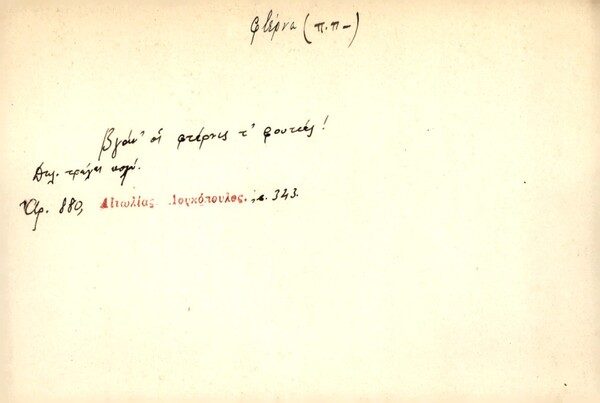 φτέρνα (π.π-)
Βγάν' οἱ φτέρνις τ' φουτιές!
Δηλ. τρέχει πολύ.
Ἀρ. 880, Αἰτωλίας. Λουκόπουλος. σ. 343.